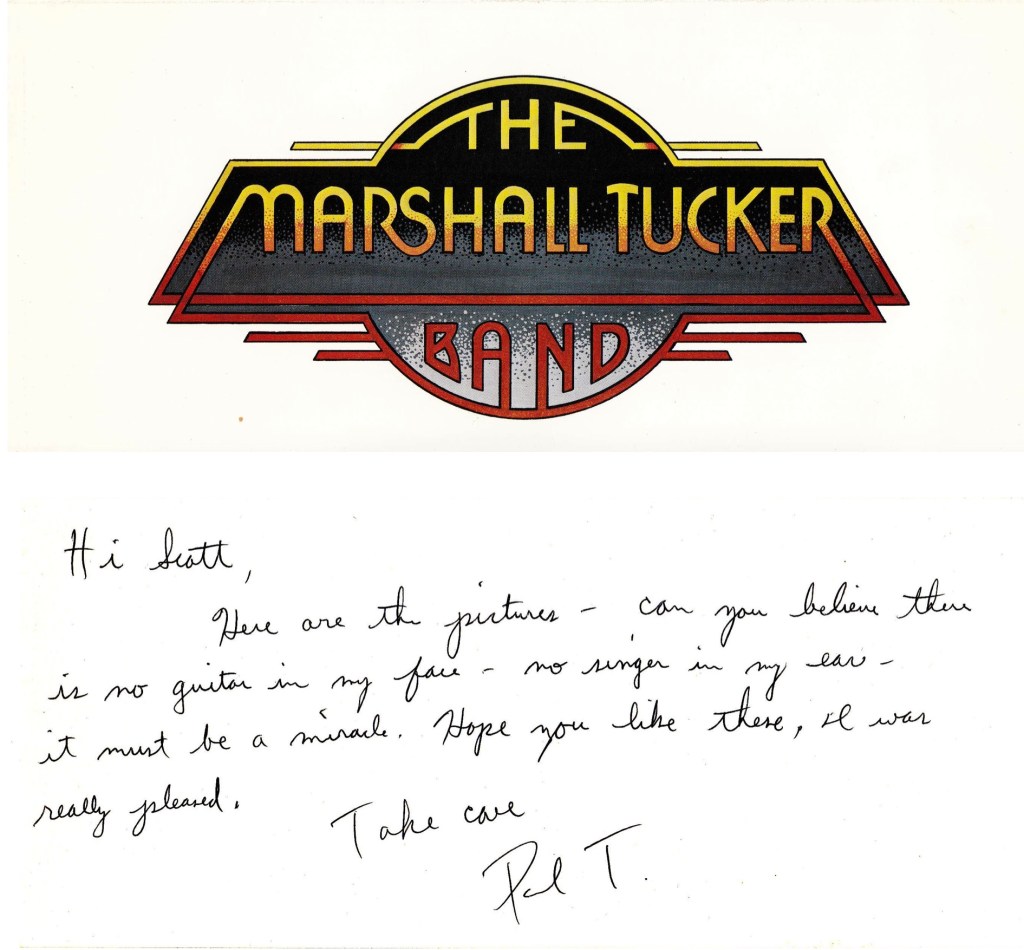 THE
MARSHALL TUCKER
BAND
Hi Scott,
Here are the pictures - can you believe there
is no guitar in my face - no singer in my ear -
it must be a miracle. Hope you like these, I was
really pleased.
Take care
Paul T.